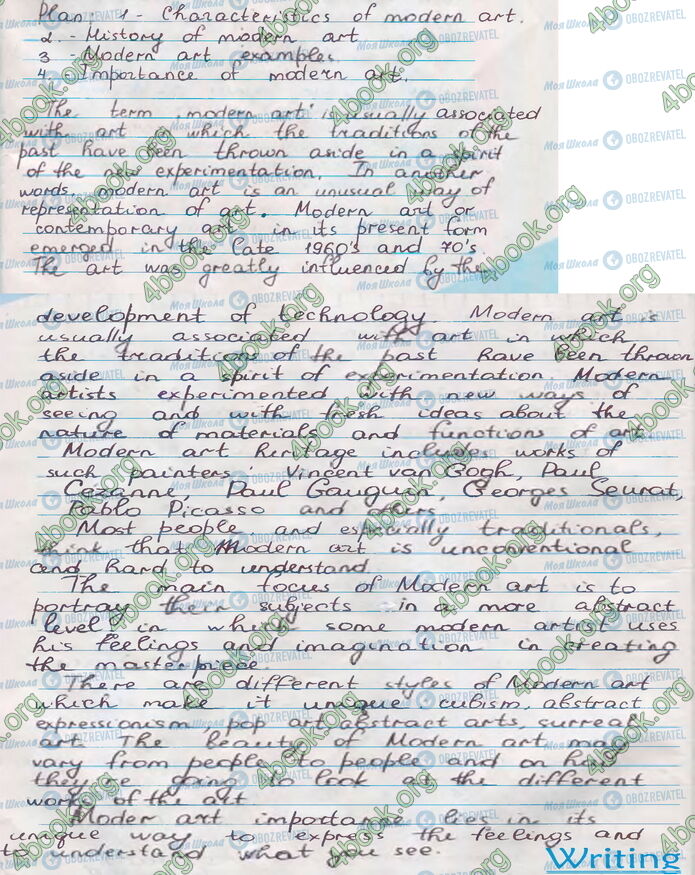 Plan: 1 - Characteristics of modern art.
2 - History of modern art
3 - Modern art examples.
4 - Importance of modern art.
The term "modern art" is usually associated
with art in which the traditions of the
past have been thrown aside in a spirit
of the experimentation. In another
words, modern art is an unusual way of
representation of art. Modern art or
contemporary art in its present form
emerged in the late 1960's and 70's.
The art was greatly influenced by the
development of technology. Modern art is
usually associated with art in which
the traditions of the past have been thrown
aside in a spirit of experimentation. Modern
artists experimented with new ways of
seeing and with fresh ideas about the
nature of materials and functions of art
Modern art heritage includes works of
such painters Vincent van Gogh, Paul
Cezanne, Paul Gauguin, Georges Seurat,
Pablo Picasso and others
Most people and especially traditionals,
think that Modern art is unconventional
and hard to understand
The main focus of Modern art is to
portray their subjects in a more abstract
level in where some modern artist uses
his feelings and imagination in creating
the masterpiece
There are different styles of Modern art
which make it unique cubism, abstract
expressionism, pop art abstract arts, surreal
art. The beauty of Modern art may
vary from people to people and on how
they're going to look at the different
works of the art
Moder art importance lies in its
unique way to express the feelings and
to understand what you see.
Writing
4book.org
Моя Школа OBOZREVATEL